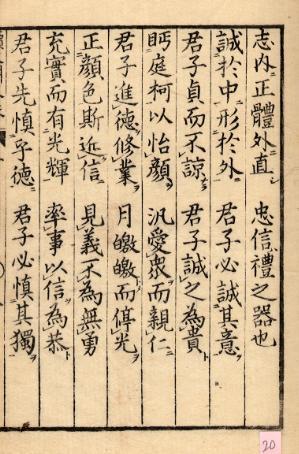 志内正體外直　忠信禮之器也
誠於中形於外　君子必誠其意
君子貞而不諒　君子誠之為貴
眄庭柯以怡顔　汎愛衆而親仁
君子進德修業　月皦皦而停光
正顔色斯近信　見義不為無勇
充實而有光輝　率事以信為恭
君子先慎乎德　君子必慎其獨
20